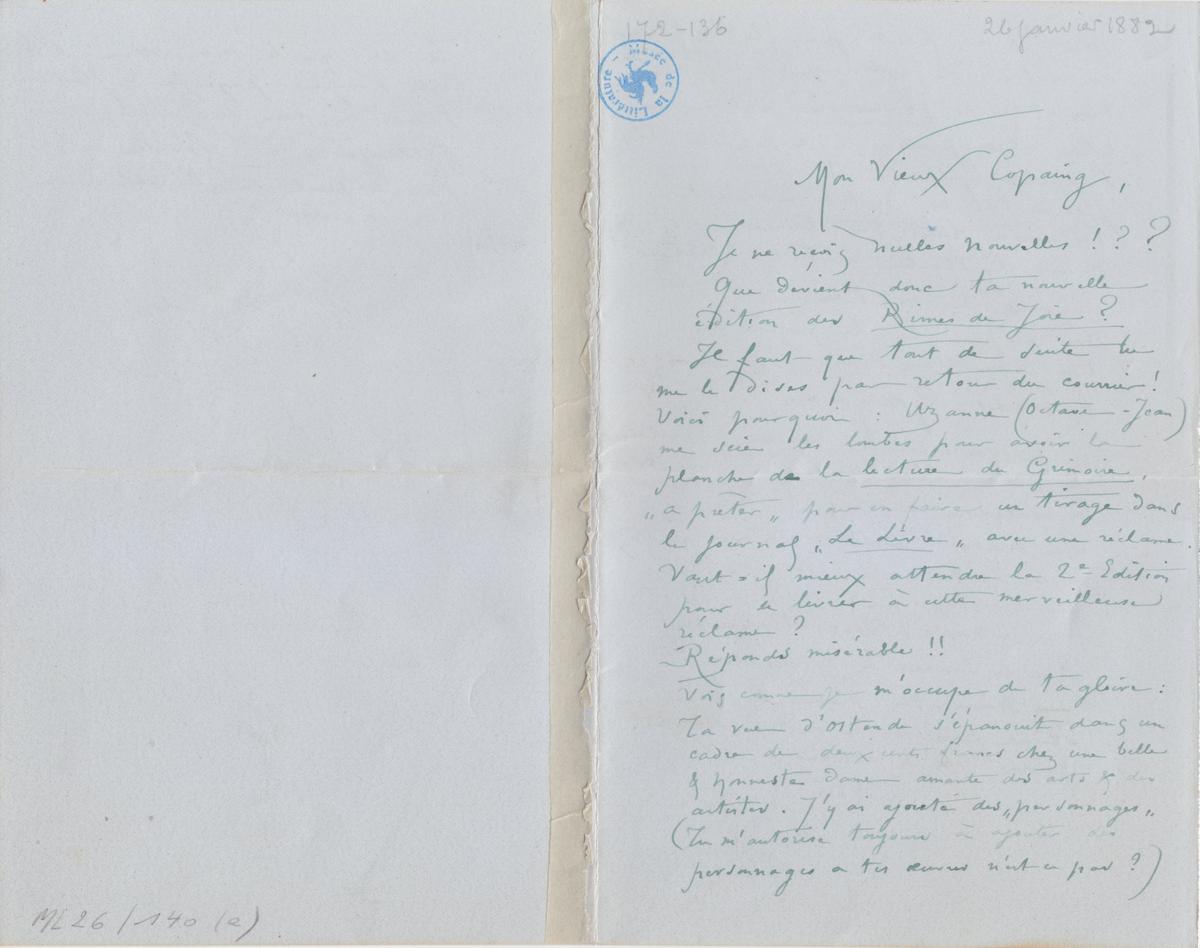 172-136
26 janvier 1882
Musée de la Littérature -
Mon Vieux Copaing,
Je ne reçois nulles nouvelles ! ? ?
Que devient donc ta nouvelle
édition des Rimes de Joie ?
Il faut que tout de suite tu
me le dises par retour du courrier !
Voici pourquoi : Uzanne (Octave - Jean)
me scie les lombes pour avoir la
planche de la lecture du Grimoire,
„a prêter„ pour en faire un tirage dans
le journal „Le Livre„ avec une réclame.
Vaut-il mieux attendre la 2e Edition
pour la livrer à cette merveilleuse
réclame ?
Réponds misérable !!
Vois comme je m'occupe de ta gloire :
Ta vue d'Ostende s'épanouit dans un
cadre de deux cents francs chez une belle
& honneste dame amante des arts & des
artistes. J'y ai ajouté des „personnages„
(Tu m'autorise toujours à ajouter des
personnages a tes œuvres n'est ce pas ?)
ML 26 / 140 (a)